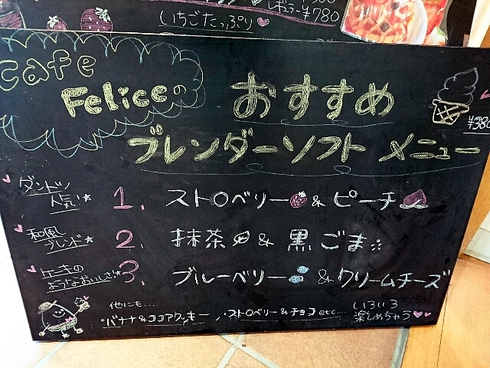 ¥780
いちごたっぷり
cafe
Feliceの
おすすめ
¥380
ブレンダーソフト メニュー
ダントツ
人気★
1. ストロベリー & ピーチ
和風
ブレンド★
2. 抹茶 & 黒ごま
ケーキの
ようなおいしさ★
3. ブルーベリー & クリームチーズ
他にも…
・バナナ&ココアクッキー ・ストロベリー&チョコ etc…
いろいろ
楽しめちゃう